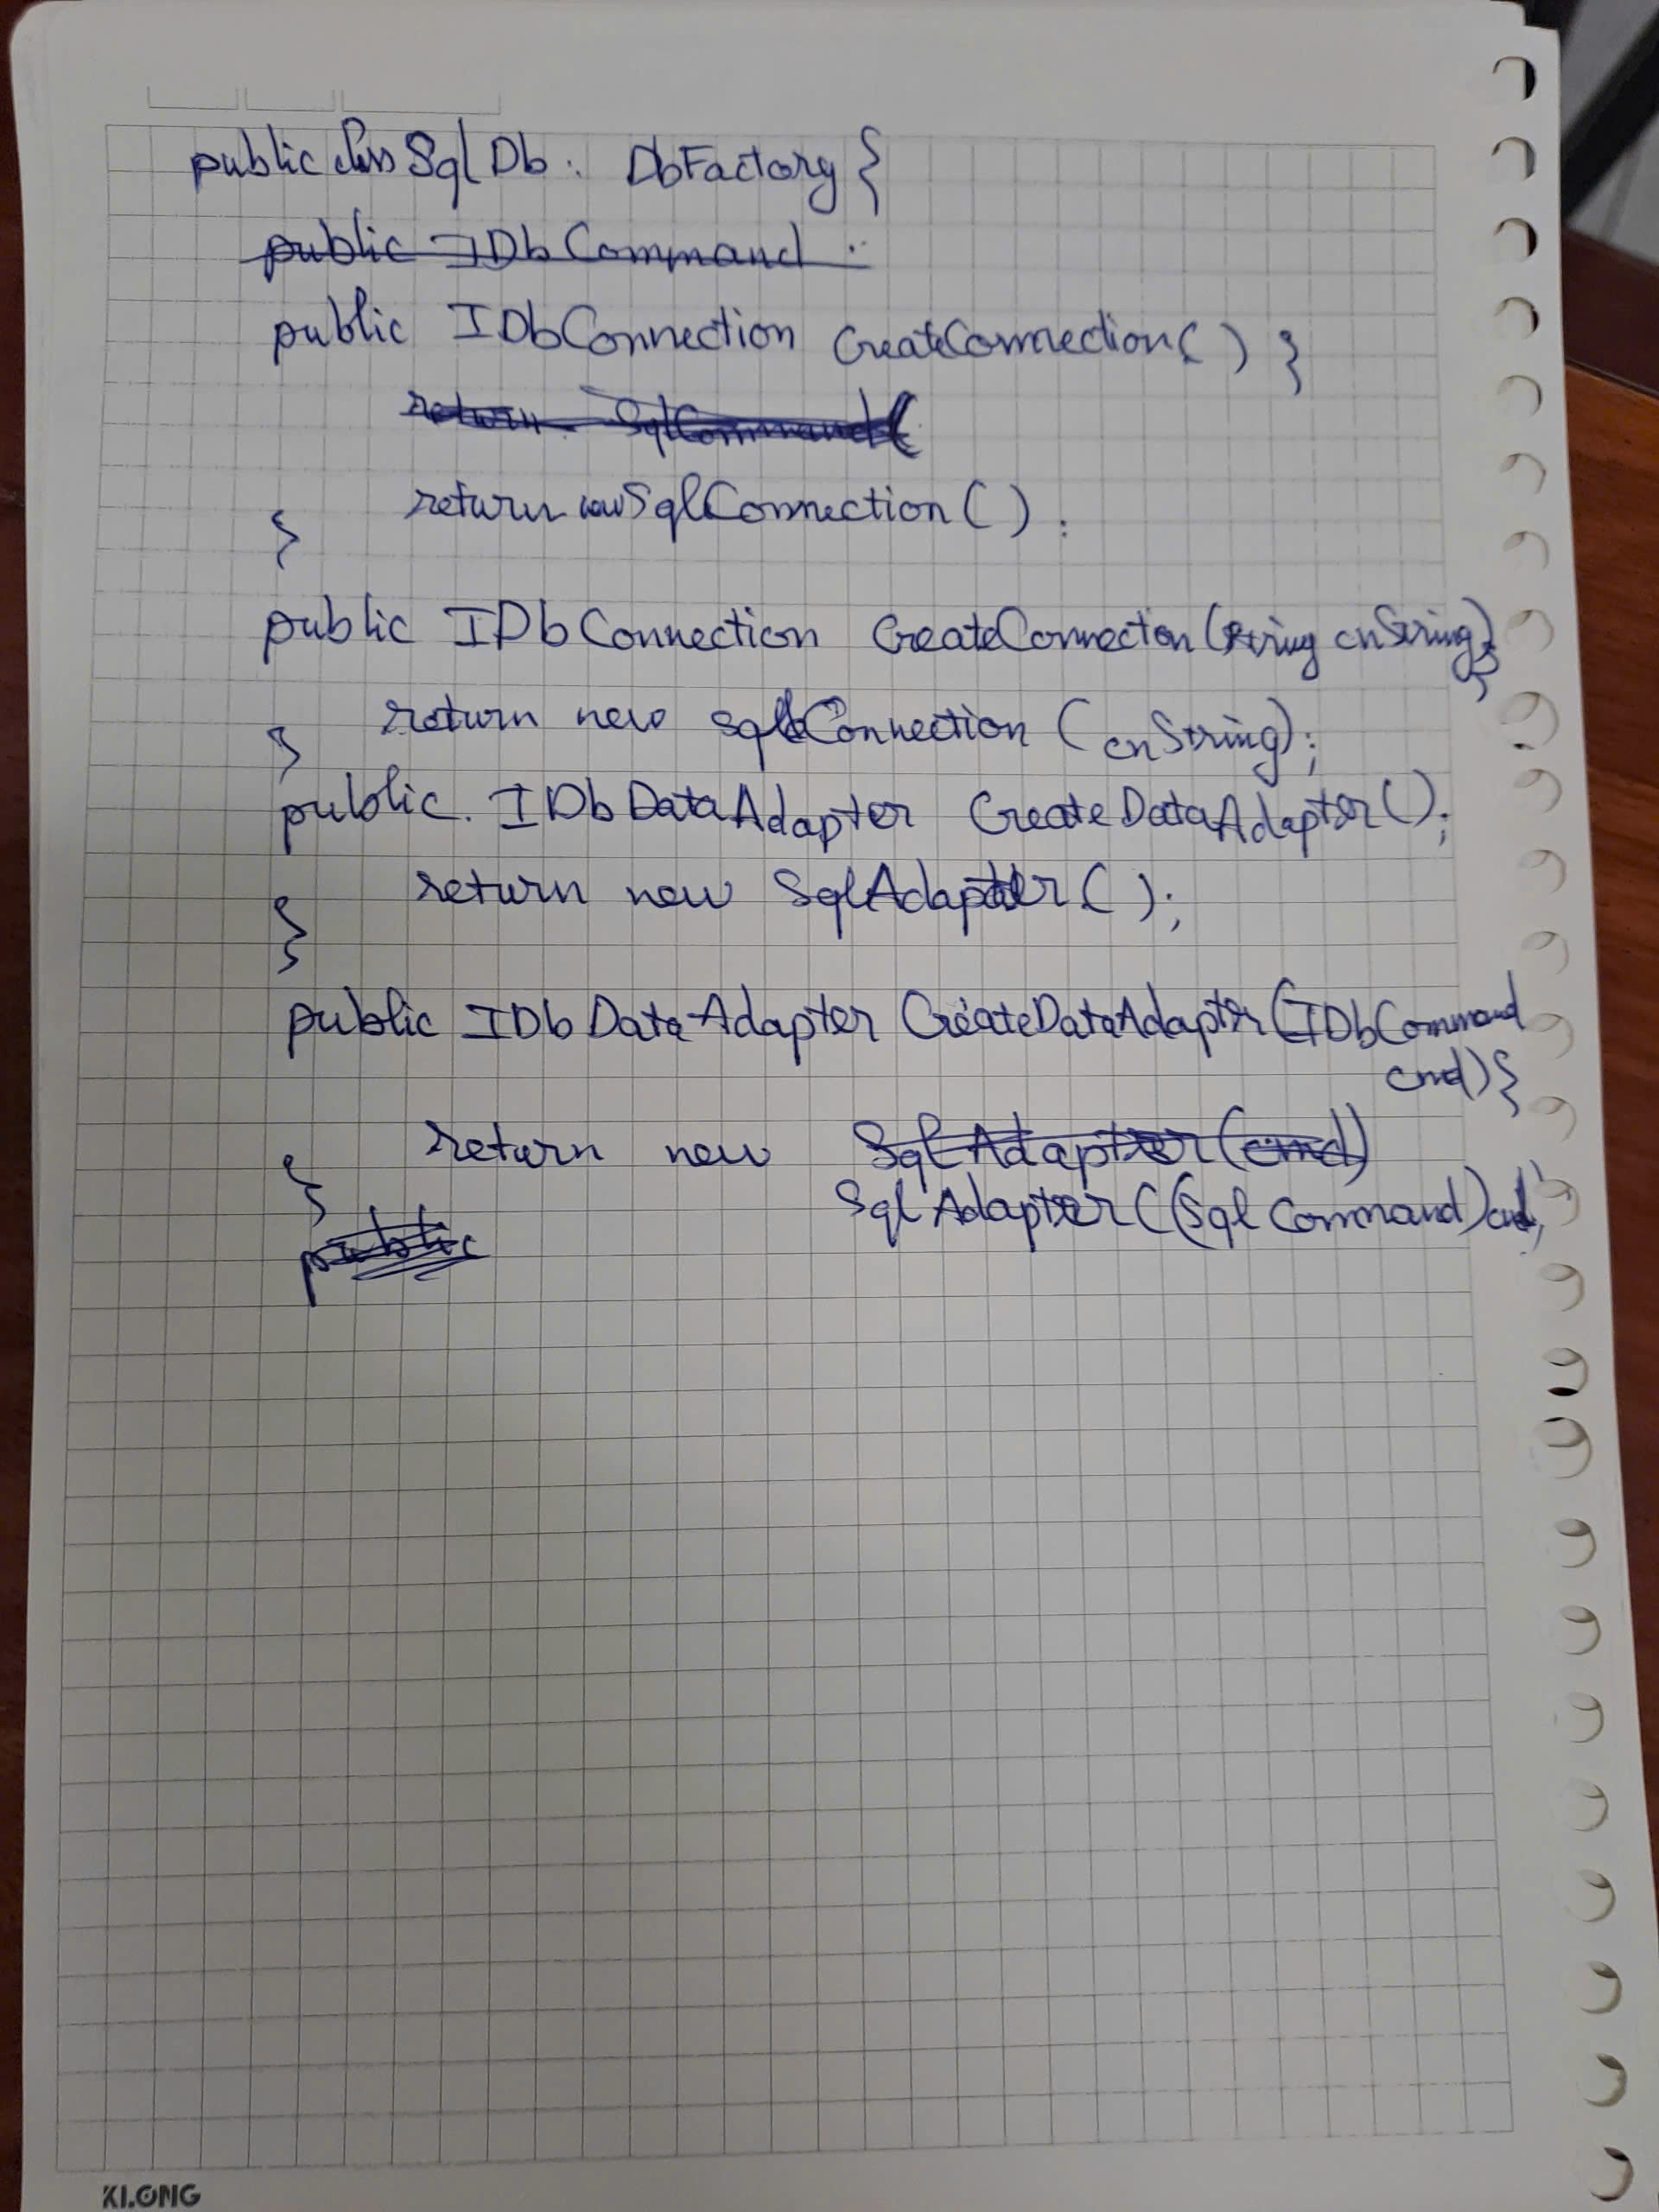 public class SqlDb : DbFactory {
public IDbCommand :
public IDbConnection CreateConnection() }
return SqlCommand(
return new SqlConnection() ;
}
public IDbConnection CreateConnecton (string cnString) }
return new sqlConnection (cnString);
}
public. IDbDataAdapter CreateDataAdapter();
return new SqlAdapter();
}
public IDbDataAdapter CreateDataAdapter(IDbCommand
cmd) {
return new SqlAdapter(cmd)
}
SqlAdapter((SqlCommand)cmd);
public
KLONG